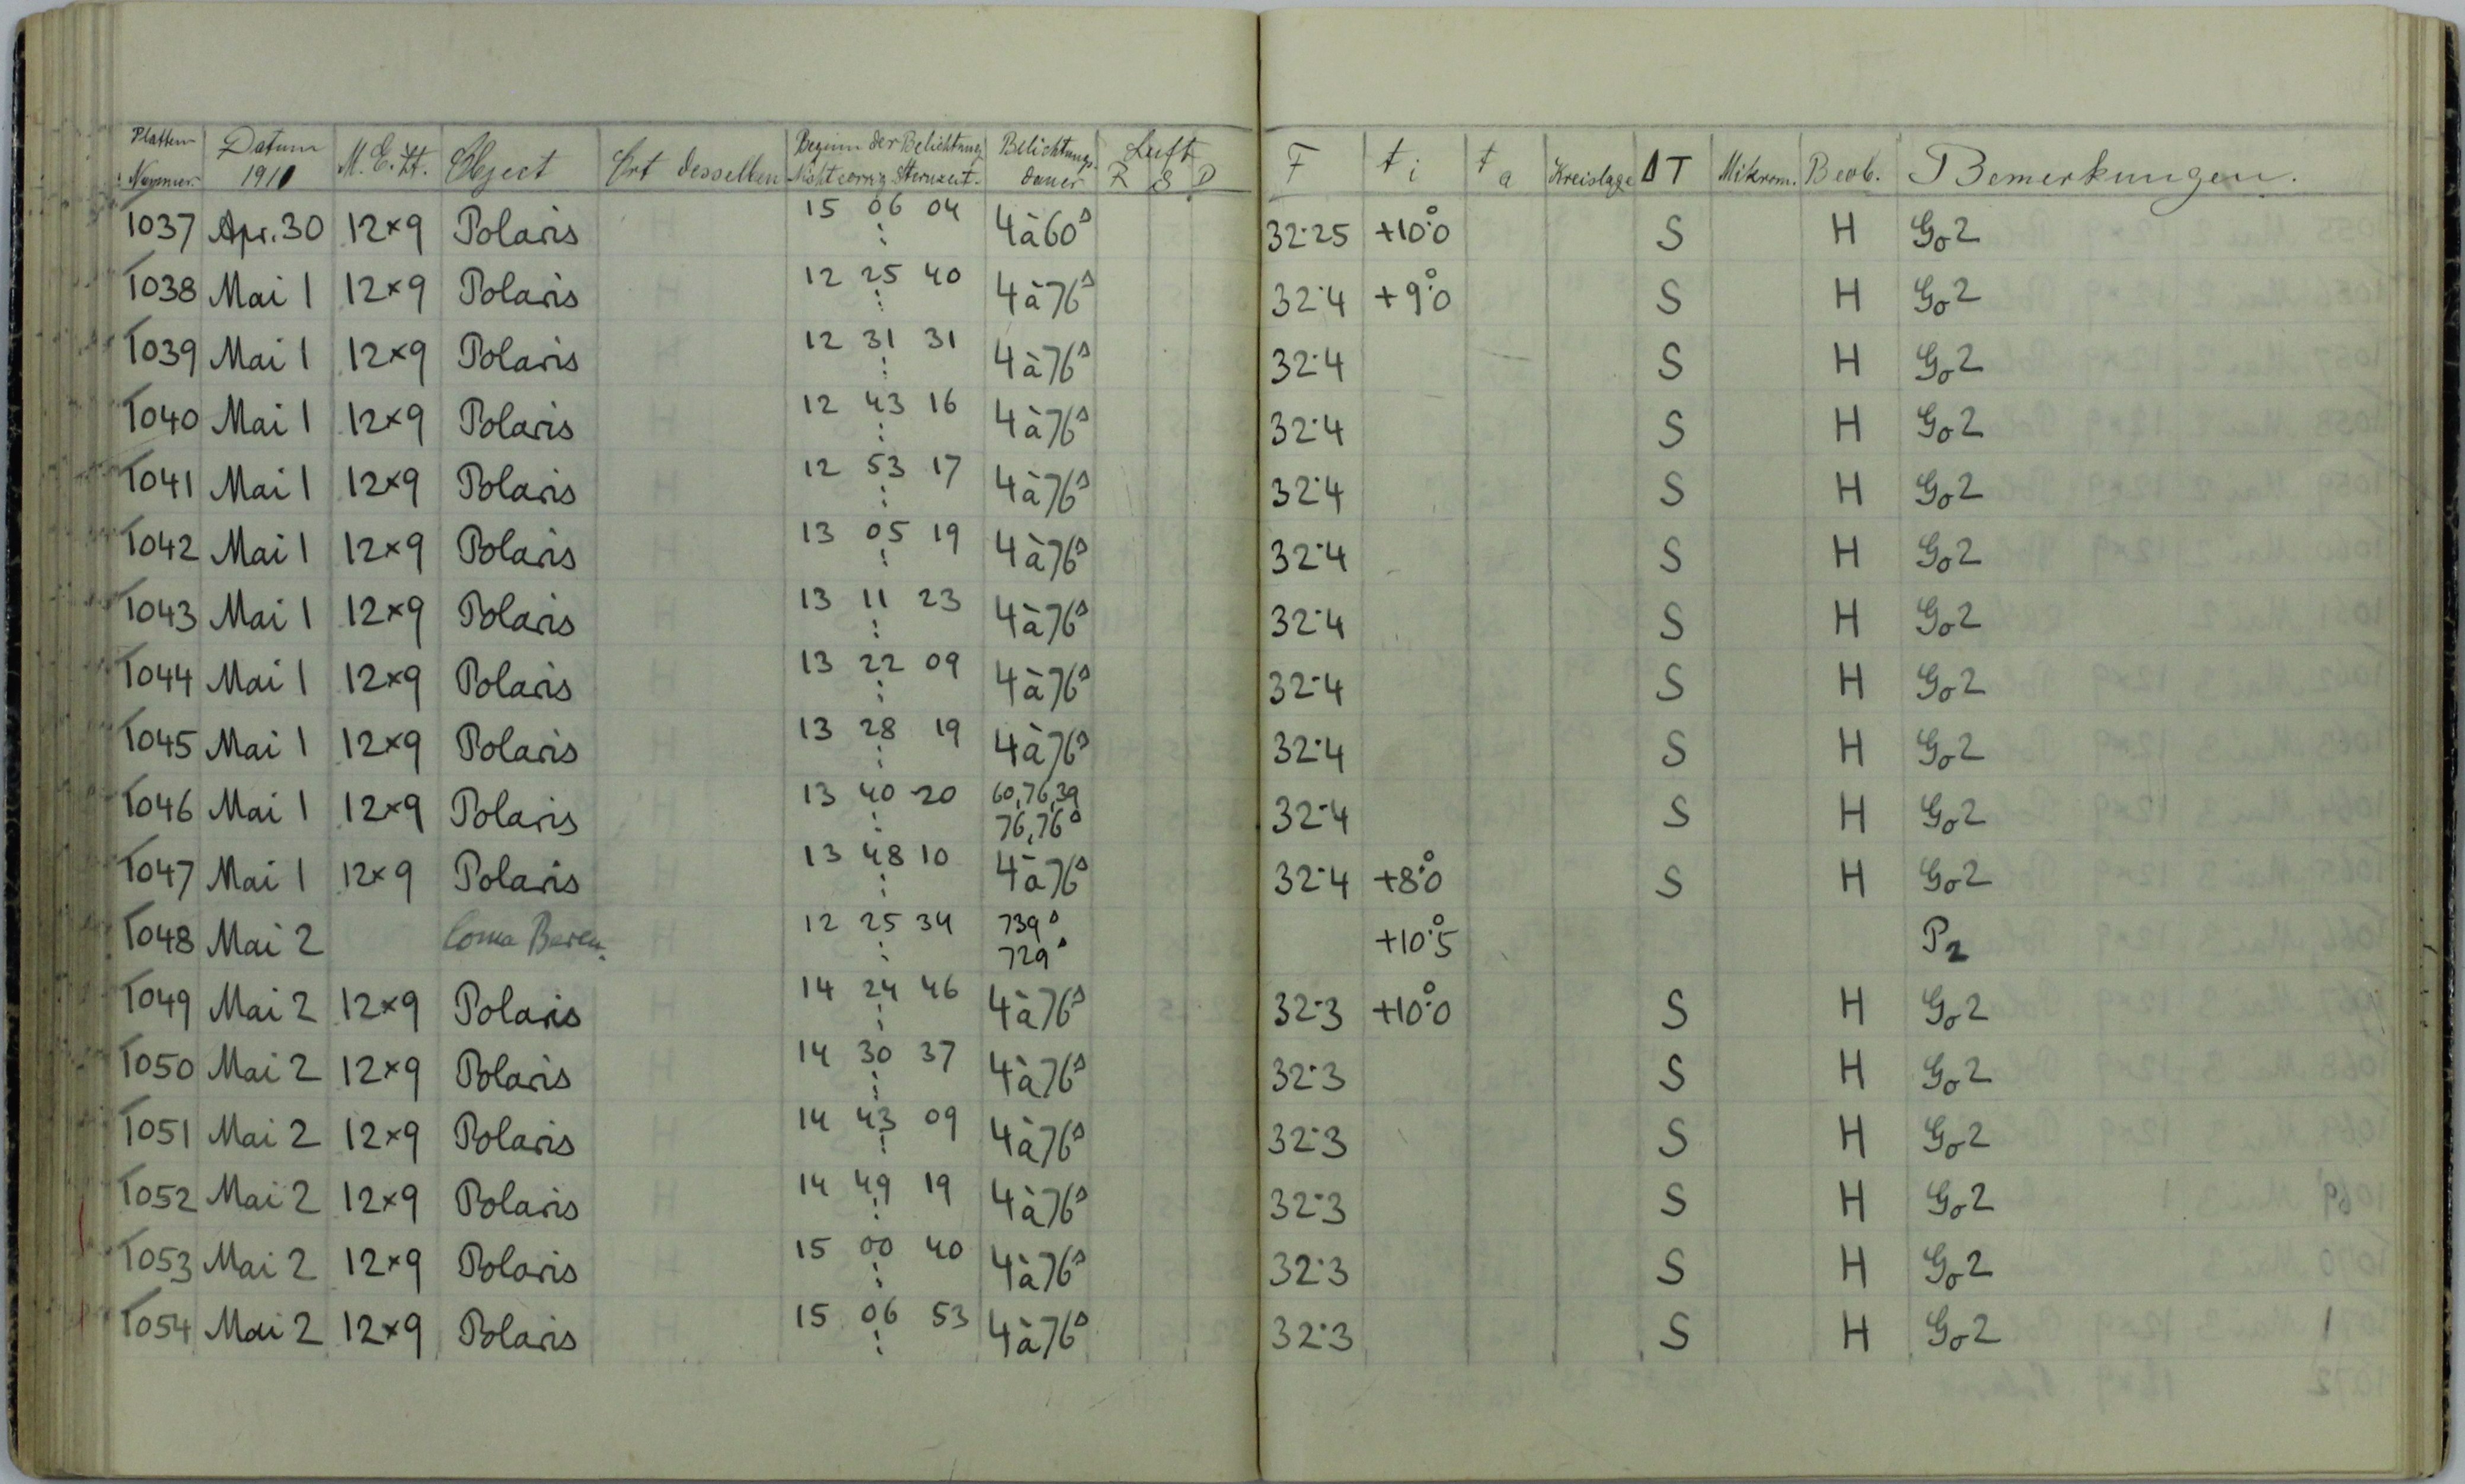 Platten Nummer. Datum 1911 M.E.Zt. Object Ort desselben Beginn der Belichtung Nicht corrig. Sternzeit. Belichtungsdauer Luft R S D F t i t a Kreislage ΔT Mikrom. Beob. Bemerkungen.
1037 Apr. 30 12×9 Polaris 15 06 04 4 à 60ˢ 32.25 +10.°0 S H Go2
1038 Mai 1 12×9 Polaris 12 25 40 4 à 76ˢ 32.4 +9.°0 S H Go2
1039 Mai 1 12×9 Polaris 12 31 31 4 à 76ˢ 32.4 S H Go2
1040 Mai 1 12×9 Polaris 12 43 16 4 à 76ˢ 32.4 S H Go2
1041 Mai 1 12×9 Polaris 12 53 17 4 à 76ˢ 32.4 S H Go2
1042 Mai 1 12×9 Polaris 13 05 19 4 à 76ˢ 32.4 S H Go2
1043 Mai 1 12×9 Polaris 13 11 23 4 à 76ˢ 32.4 S H Go2
1044 Mai 1 12×9 Polaris 13 22 09 4 à 76ˢ 32.4 S H Go2
1045 Mai 1 12×9 Polaris 13 28 19 4 à 76ˢ 32.4 S H Go2
1046 Mai 1 12×9 Polaris 13 40 20 60, 76, 39 76, 76ˢ 32.4 S H Go2
1047 Mai 1 12×9 Polaris 13 48 10 4 à 76ˢ 32.4 +8.°0 S H Go2
1048 Mai 2 Coma Beren. 12 25 34 739ˢ 729ˢ +10.°5 P2
1049 Mai 2 12×9 Polaris 14 24 46 4 à 76ˢ 32.3 +10.°0 S H Go2
1050 Mai 2 12×9 Polaris 14 30 37 4 à 76ˢ 32.3 S H Go2
1051 Mai 2 12×9 Polaris 14 43 09 4 à 76ˢ 32.3 S H Go2
1052 Mai 2 12×9 Polaris 14 49 19 4 à 76ˢ 32.3 S H Go2
1053 Mai 2 12×9 Polaris 15 00 40 4 à 76ˢ 32.3 S H Go2
1054 Mai 2 12×9 Polaris 15 06 53 4 à 76ˢ 32.3 S H Go2